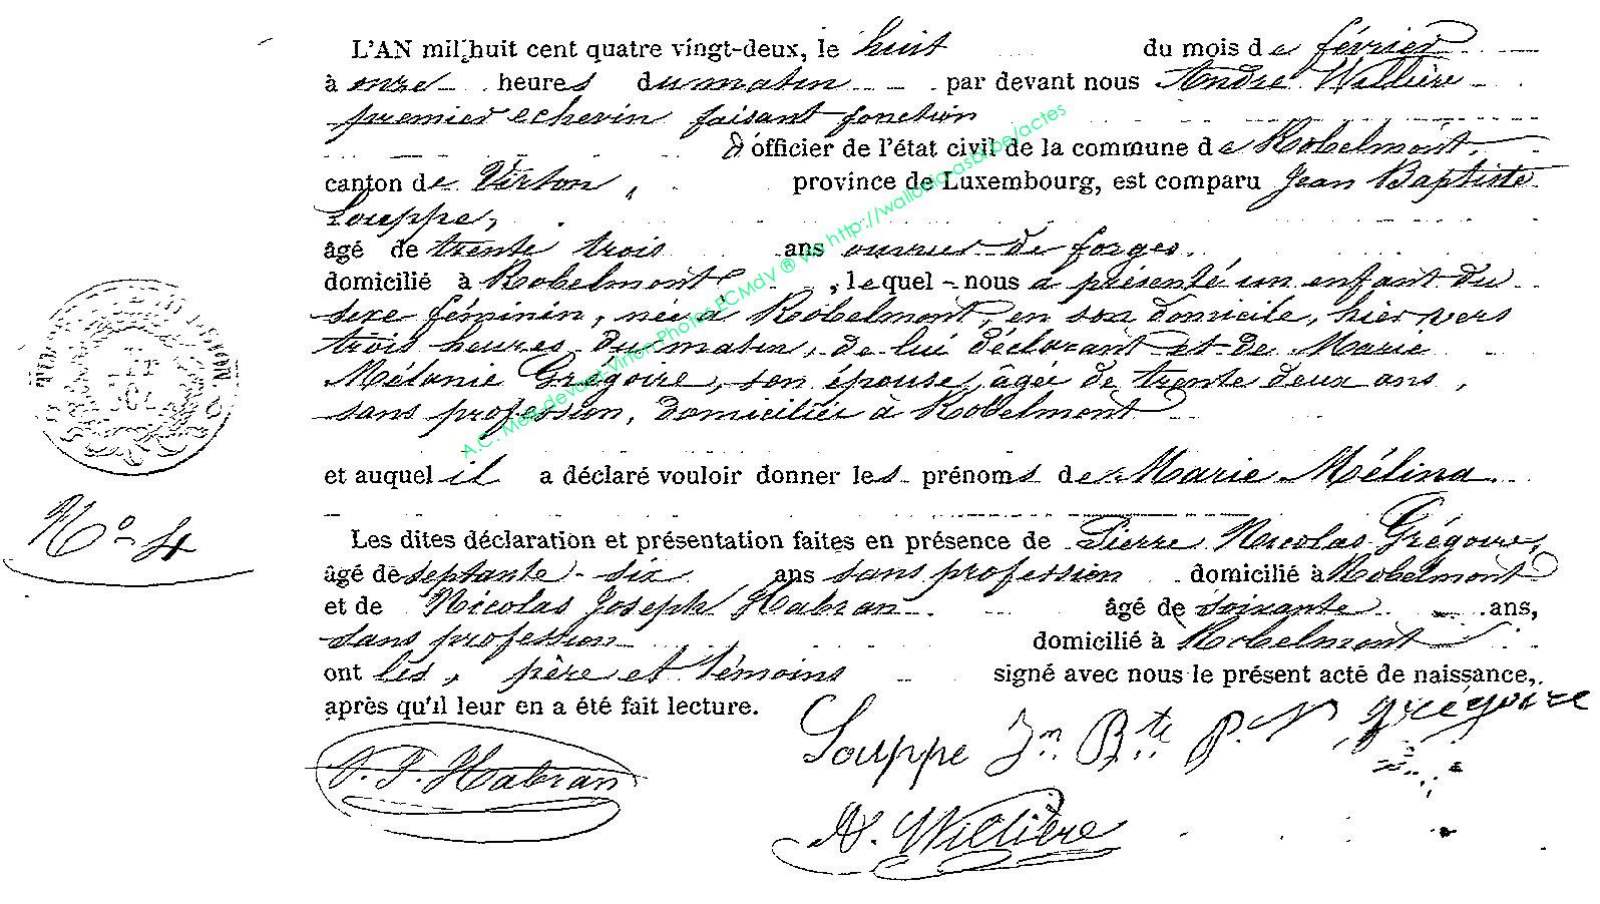 L'AN mil huit cent quatre vingt-deux, le huit du mois de février
à onze heures du matin par devant nous André Willière
premier echevin faisant fonction
d'officier de l'état civil de la commune de Robelmont,
canton de Virton, province de Luxembourg, est comparu Jean Baptiste
Souppe,
âgé de trente trois ans ouvrier de forges
domicilié à Robelmont, lequel nous a présenté un enfant du
sexe féminin, née à Robelmont, en son domicile, hier vers
trois heures du matin, de lui déclarant et de Marie
Mélanie Grégoire, son épouse, âgée de trente deux ans,
sans profession, domiciliée à Robelmont
et auquel il a déclaré vouloir donner les prénoms de Marie Mélina
N° 4
Les dites déclaration et présentation faites en présence de Pierre Nicolas Grégoire,
âgé de septante-six ans sans profession domicilié à Robelmont
et de Nicolas Joseph Habran âgé de soixante ans,
sans profession domicilié à Robelmont
ont les, père et témoins signé avec nous le présent acte de naissance,
après qu'il leur en a été fait lecture.
Souppe Jn Bte P. N Grégoire
Habran
A. Willière
A.C. Meix-devant-Virton Photos ECMdV ® via http://wallonia-asbl.be/actes